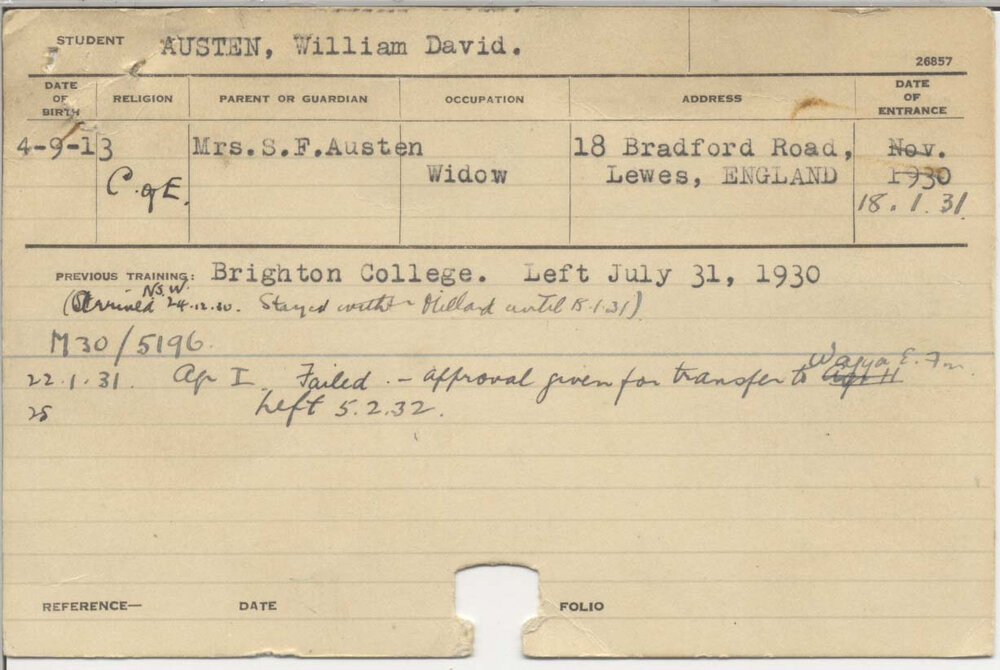 STUDENT AUSTEN, William David.
26857
DATE OF BIRTH RELIGION PARENT OR GUARDIAN OCCUPATION ADDRESS DATE OF ENTRANCE
4-9-13 Mrs.S.F.Austen 18 Bradford Road, Nov.
C. of E. Widow Lewes, ENGLAND 1930
18.1.31.
PREVIOUS TRAINING: Brighton College. Left July 31, 1930
(Arrived N.S.W. 24.12.30. Stayed with Millard until 18.1.31)
M30/5196.
22.1.31. Ag I. Failed. - approval given for transfer to Wagga E. Fm.
25 Left 5.2.32.
REFERENCE— DATE FOLIO